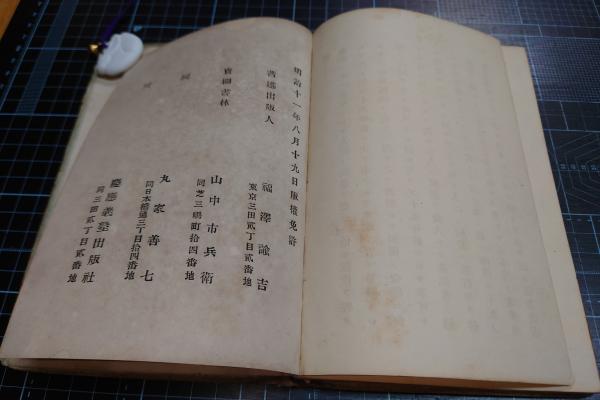 明治十一年八月十九日版權免許
著述出版人
福澤諭吉
東京三田貳丁目貳番地
賣捌書林
山中市兵衛
同芝三嶋町拾四番地
同
丸家善七
同日本橋通三丁目拾四番地
同
慶應義塾出版社
同三田貳丁目貳番地